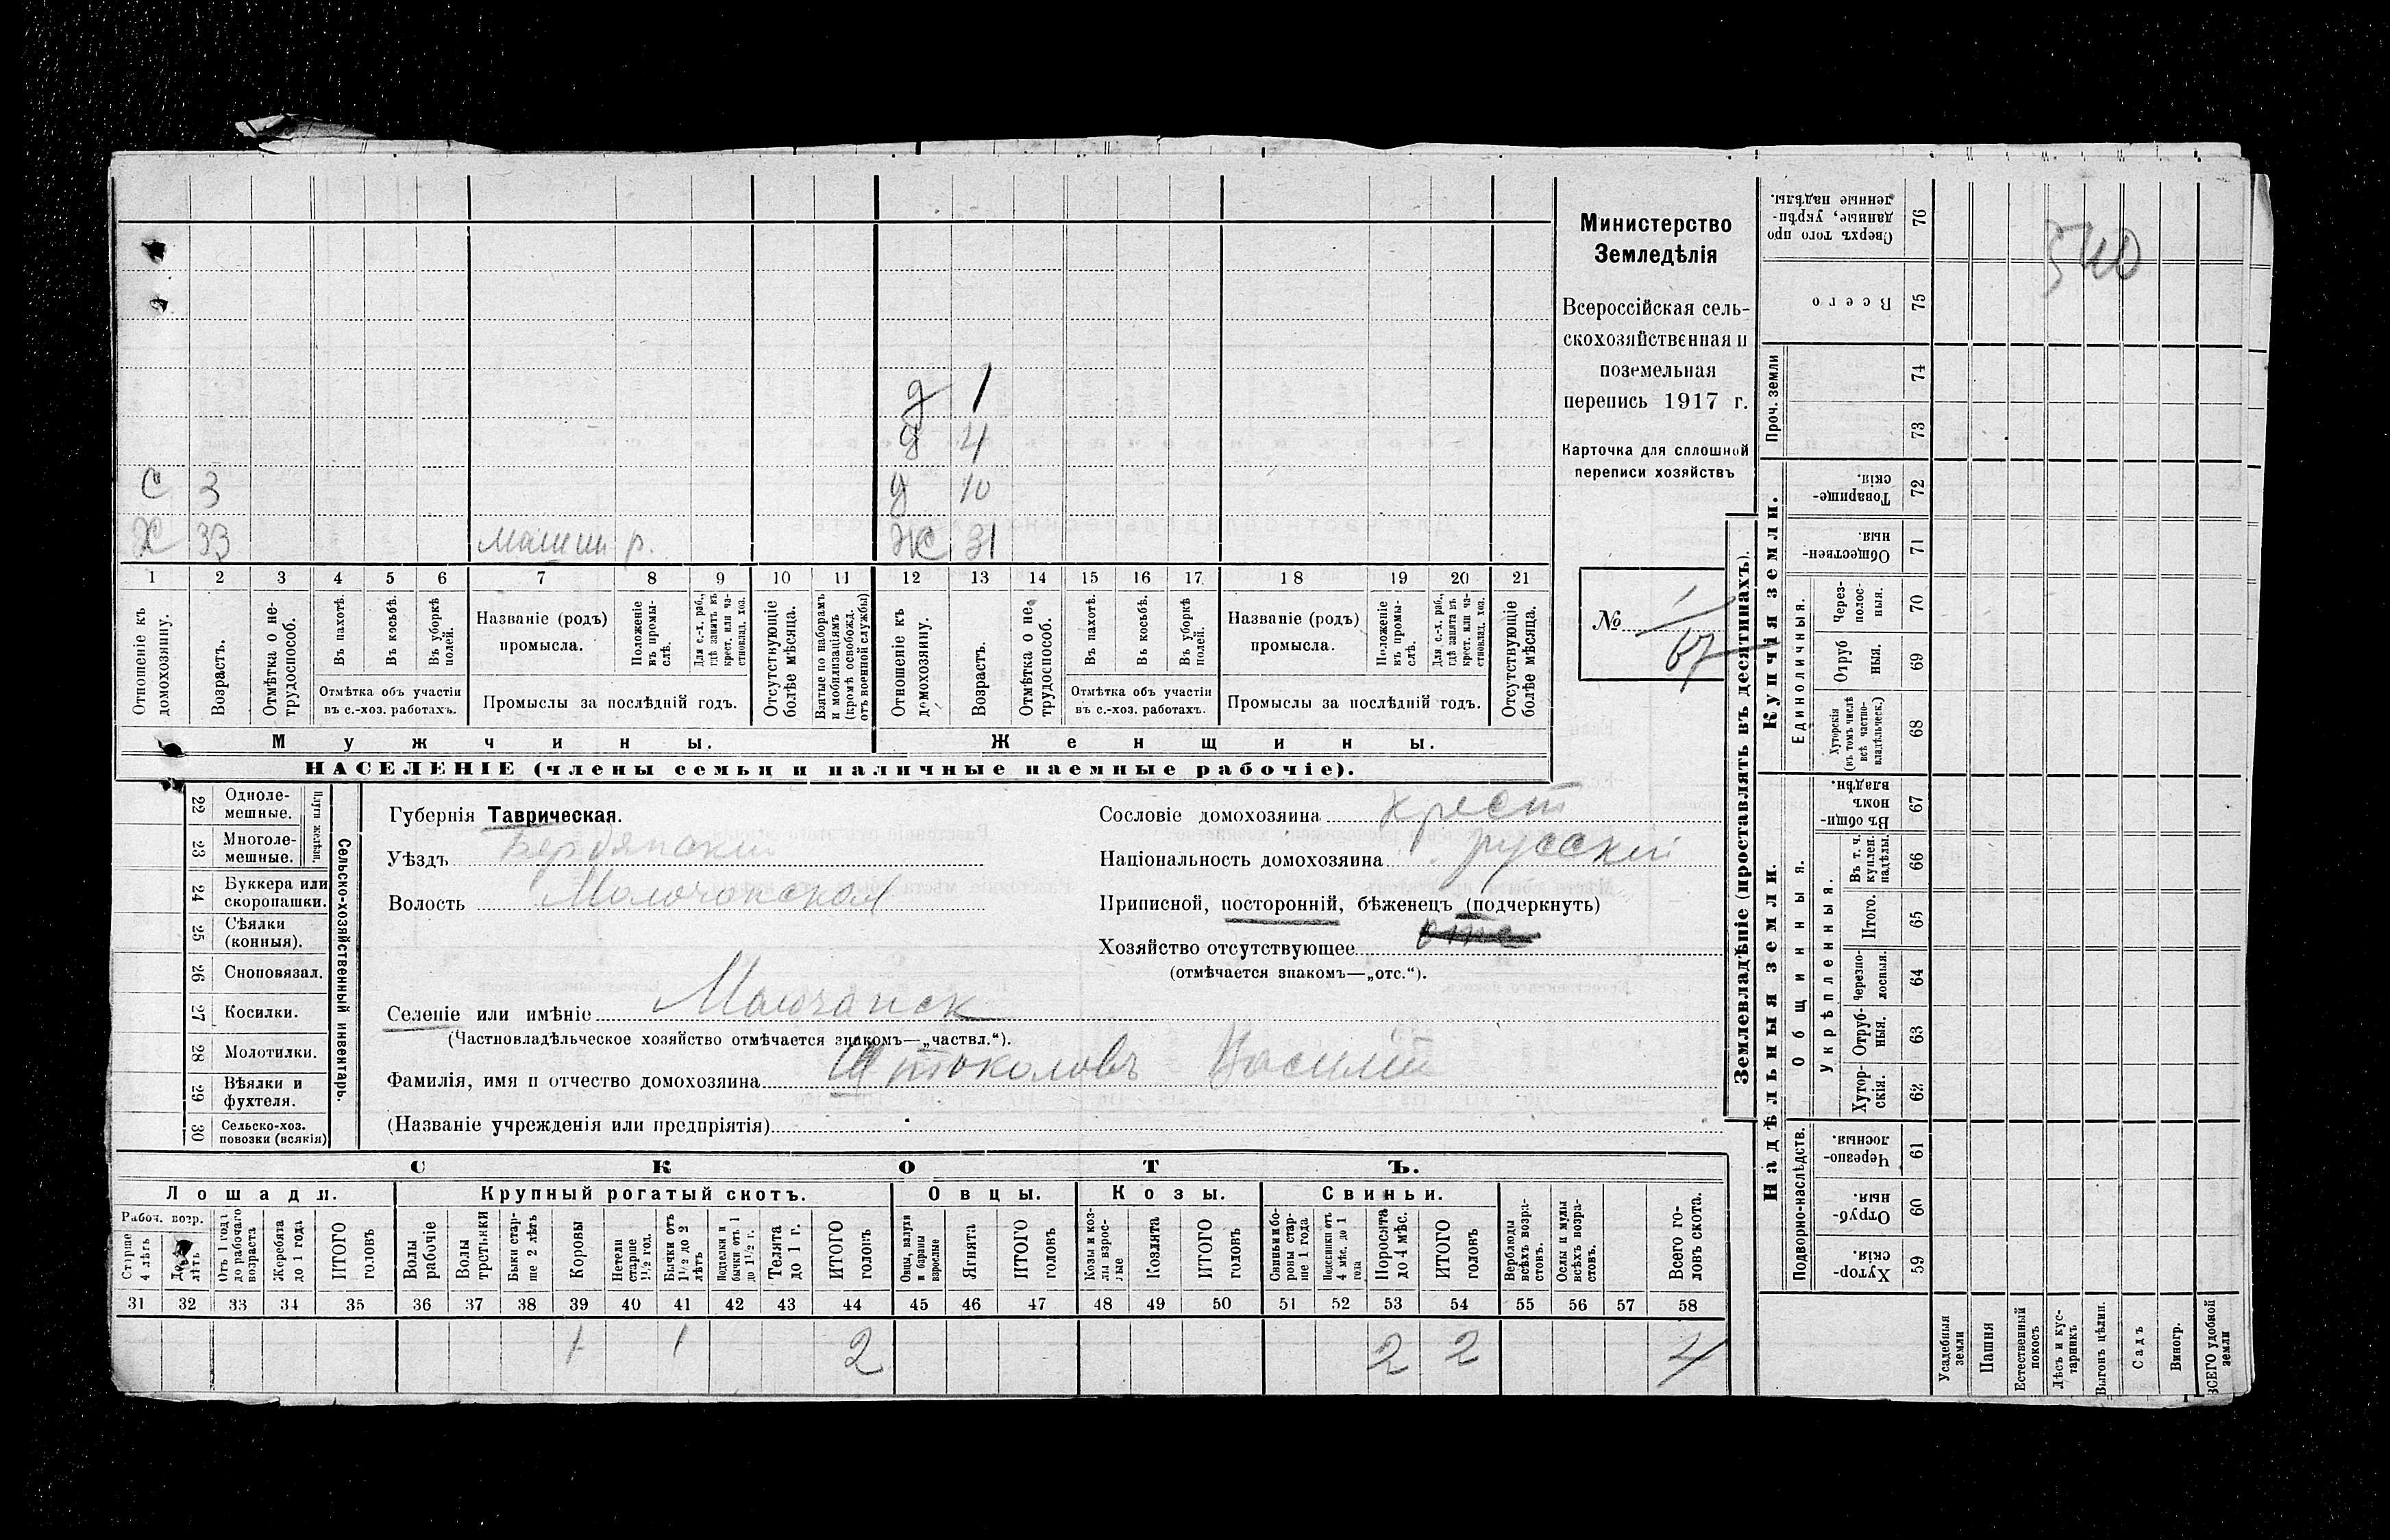 д 1
д 4
С 3 д 10
Х 33 Машин р. Ж 31
1 2 3 4 5 6 7 8 9 10 11 12 13 14 15 16 17 18 19 20 21
Отношеніе къ домохозяину.
Возрастъ.
Отмѣтка о нетрудоспособ.
Въ пахотѣ.
Въ косьбѣ.
Въ уборкѣ полей.
Отмѣтка объ участіи
въ с.-хоз. работахъ.
Названіе (родъ)
промысла.
Положеніе въ промыслѣ.
Для с.-х. раб., гдѣ занятъ въ крест. или частновлад. хоз.
Промыслы за послѣдній годъ.
Отсутствующіе болѣе мѣсяца.
Взятые по наборамъ и мобилизаціямъ (кромѣ освобожд. отъ военной службы)
Отношеніе къ домохозяину.
Возрастъ.
Отмѣтка о нетрудоспособ.
Въ пахотѣ.
Въ косьбѣ.
Въ уборкѣ полей.
Отмѣтка объ участіи
въ с.-хоз. работахъ.
Названіе (родъ)
промысла.
Положеніе въ промыслѣ.
Для с.-х. раб., гдѣ занята въ крест. или частновлад. хоз.
Промыслы за послѣдній годъ.
Отсутствующіе болѣе мѣсяца.
Мужчины. Женщины.
НАСЕЛЕНІЕ (члены семьи и наличные наемные рабочіе).
Министерство
Земледѣлія
Всероссійская сель-
скохозяйственная и
поземельная
перепись 1917 г.
Карточка для сплошной
переписи хозяйствъ
№ 1
67
22 Одноле-
мешные.
23 Многоле-
мешные.
Плуги желѣзн.
24 Буккера или
скоропашки.
25 Сѣялки
(конныя).
26 Сноповязал.
27 Косилки.
28 Молотилки.
29 Вѣялки и
фухтеля.
30 Сельско-хоз.
повозки (всякія)
Сельско-хозяйственный инвентарь.
Губернія Таврическая.
Уѣздъ Бердянский
Волость Молочанская
Сословіе домохозяина крест
Національность домохозяина русскій
Приписной, посторонній, бѣженецъ (подчеркнуть)
Хозяйство отсутствующее
(отмѣчается знакомъ—„отс.“).
Селеніе или имѣніе Молочанск
(Частновладѣльческое хозяйство отмѣчается знакомъ—„частвл.“).
Фамилія, имя и отчество домохозяина Щтоколовъ Василій
(Названіе учрежденія или предпріятія)
СКОТЪ.
Лошади. Крупный рогатый скотъ. Овцы. Козы. Свиньи.
Рабоч. возр.
Старше 4 лѣтъ
До 4 лѣтъ
Отъ 1 года до рабочаго возраста
Жеребята до 1 года
ИТОГО головъ
Волы рабочіе
Волы третьяки
Быки старше 2 лѣтъ
Коровы
Нетели старше 1½ год.
Бычки отъ 1½ до 2 лѣтъ
Подтелки и бычки отъ 1 до 1½ г.
Телята до 1 г.
ИТОГО головъ
Овцы, валухи и бараны взрослые
Ягнята
ИТОГО головъ
Козы и козлы взрослые
Козлята
ИТОГО головъ
Свиньи и боровы старше 1 года
Подсвинки отъ 4 мѣс. до 1 года
Поросята до 4 мѣс.
ИТОГО головъ
Верблюды всѣхъ возрастовъ.
Ослы и мулы всѣхъ возрастовъ.
Всего головъ скота.
31 32 33 34 35 36 37 38 39 40 41 42 43 44 45 46 47 48 49 50 51 52 53 54 55 56 57 58
1 1 2 2 2 4
Землевладѣніе (проставлять въ десятинахъ).
540
Сверхъ того проданные, укрѣпленные надѣлы. 76
Всего 75
Проч. земли 74
73
Купчія земли.
Товарищескія. 72
Общественныя. 71
Единоличныя.
Черезполосныя. 70
Отрубныя. 69
Хуторскія (въ томъ числѣ всѣ частновладѣльческ.) 68
Надѣльныя земли.
Общинныя.
Въ общинномъ владѣн. 67
Укрѣпленныя.
Въ т. ч. куплен. надѣлы. 66
Итого. 65
Черезполосныя. 64
Отрубныя. 63
Хуторскія. 62
Подворно-наслѣдств.
Черезполосныя. 61
Отрубныя. 60
Хуторскія. 59
Усадебныя земли
Пашня
Естественный покосъ
Лѣсъ и кустарникъ
Выгонъ цѣлин.
Садъ
Виногр.
ВСЕГО удобной земли